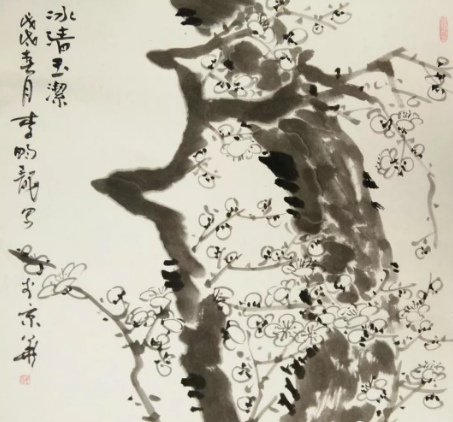 冰清玉潔
戊戌春月李鸣龍写
於京華